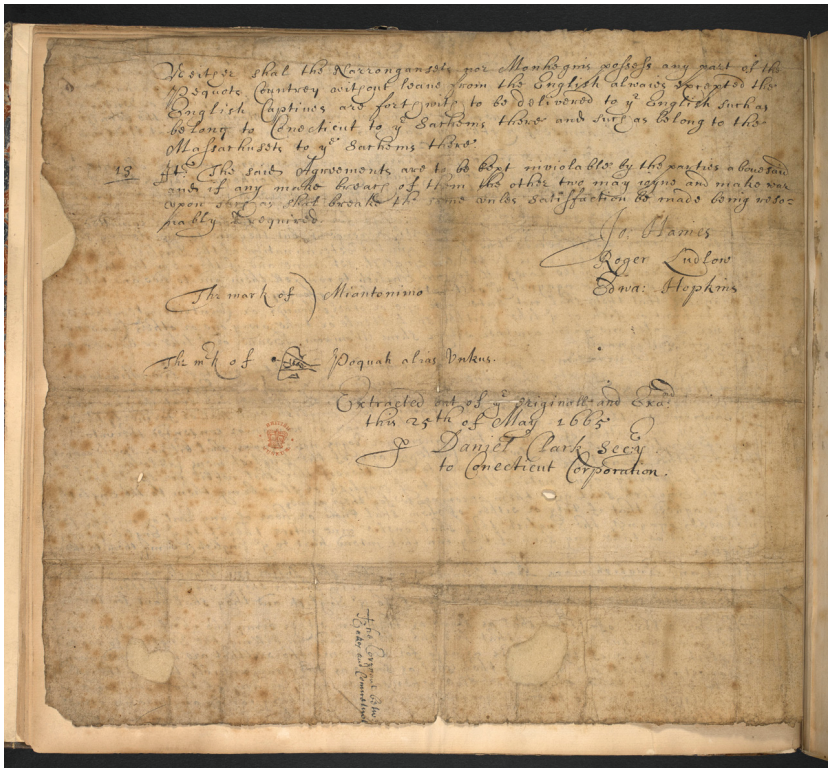 Neither shal the Narrongansets nor Monhegins possess any part of the
Pequots Countrey without leave from the English alwaies excepted the
English Captives are forthwith to be delivered to yᵉ English such as
belong to Conecticut to yᵉ Sachems there and such as belong to the
Massachusets to yᵉ Sachems there
13 It: The said Agreements are to be kept inviolable by the parties abovesaid
and if any make breach of them the other two may ioyne and make war
upon such as shal breake the same unles satisfaction be made being reso-
nably required
Jo: Hames
Roger Ludlow
Edwa: Hopkins
The mark of ) Miantonimo
The mʳk of Poquah alias Unkus.
Extracted out of yᵉ originall and Exᵃᵈ:
this 25th of May 1665
p Daniel Clark Secʳy
to Conecticut Corporation.